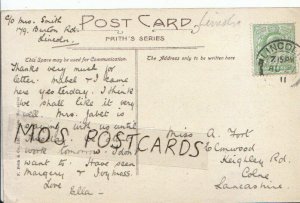 c/o Mrs. Smith
179, Burton Rd.
Lincoln.
POST CARD.
Lincoln
FRITH'S SERIES
This Space may be used for Communication.
The Address only to be written here
LINCOLN
7.15 PM
11
Thanks very much for
letter. Mabel & I came
here yesterday. I think
you shall like it very
well. Mrs. Jabet is
with us until
work tomorrow. I don
want to. Have seen
Margery & Joymass.
Love
Ella-
Miss A. Fort
Elmwood
Keighley Rd.
Colne
Lancashire.
MO'S POSTCARDS